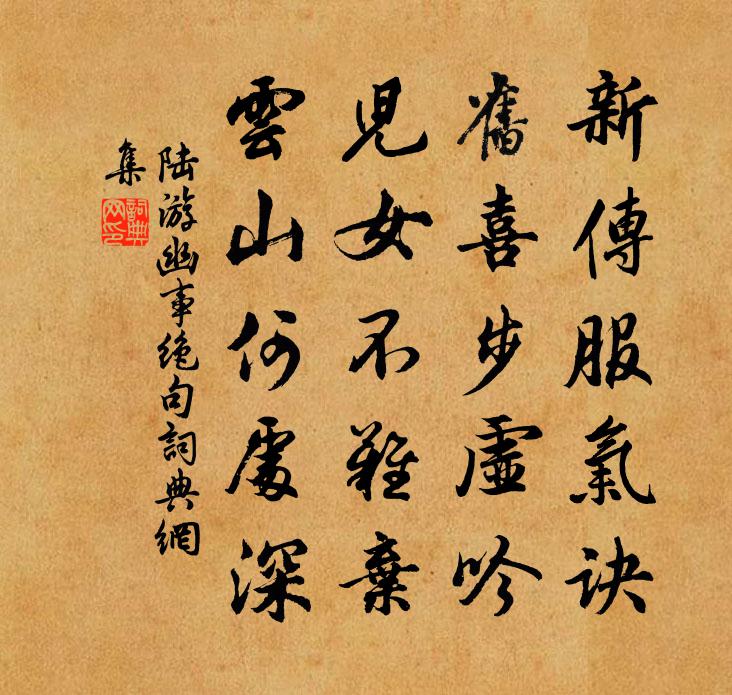 新傳服氣訣
舊喜步虛吟
兒女不難棄
雲山何處深
陸游幽事絕句詞典網
集
詞典
網印